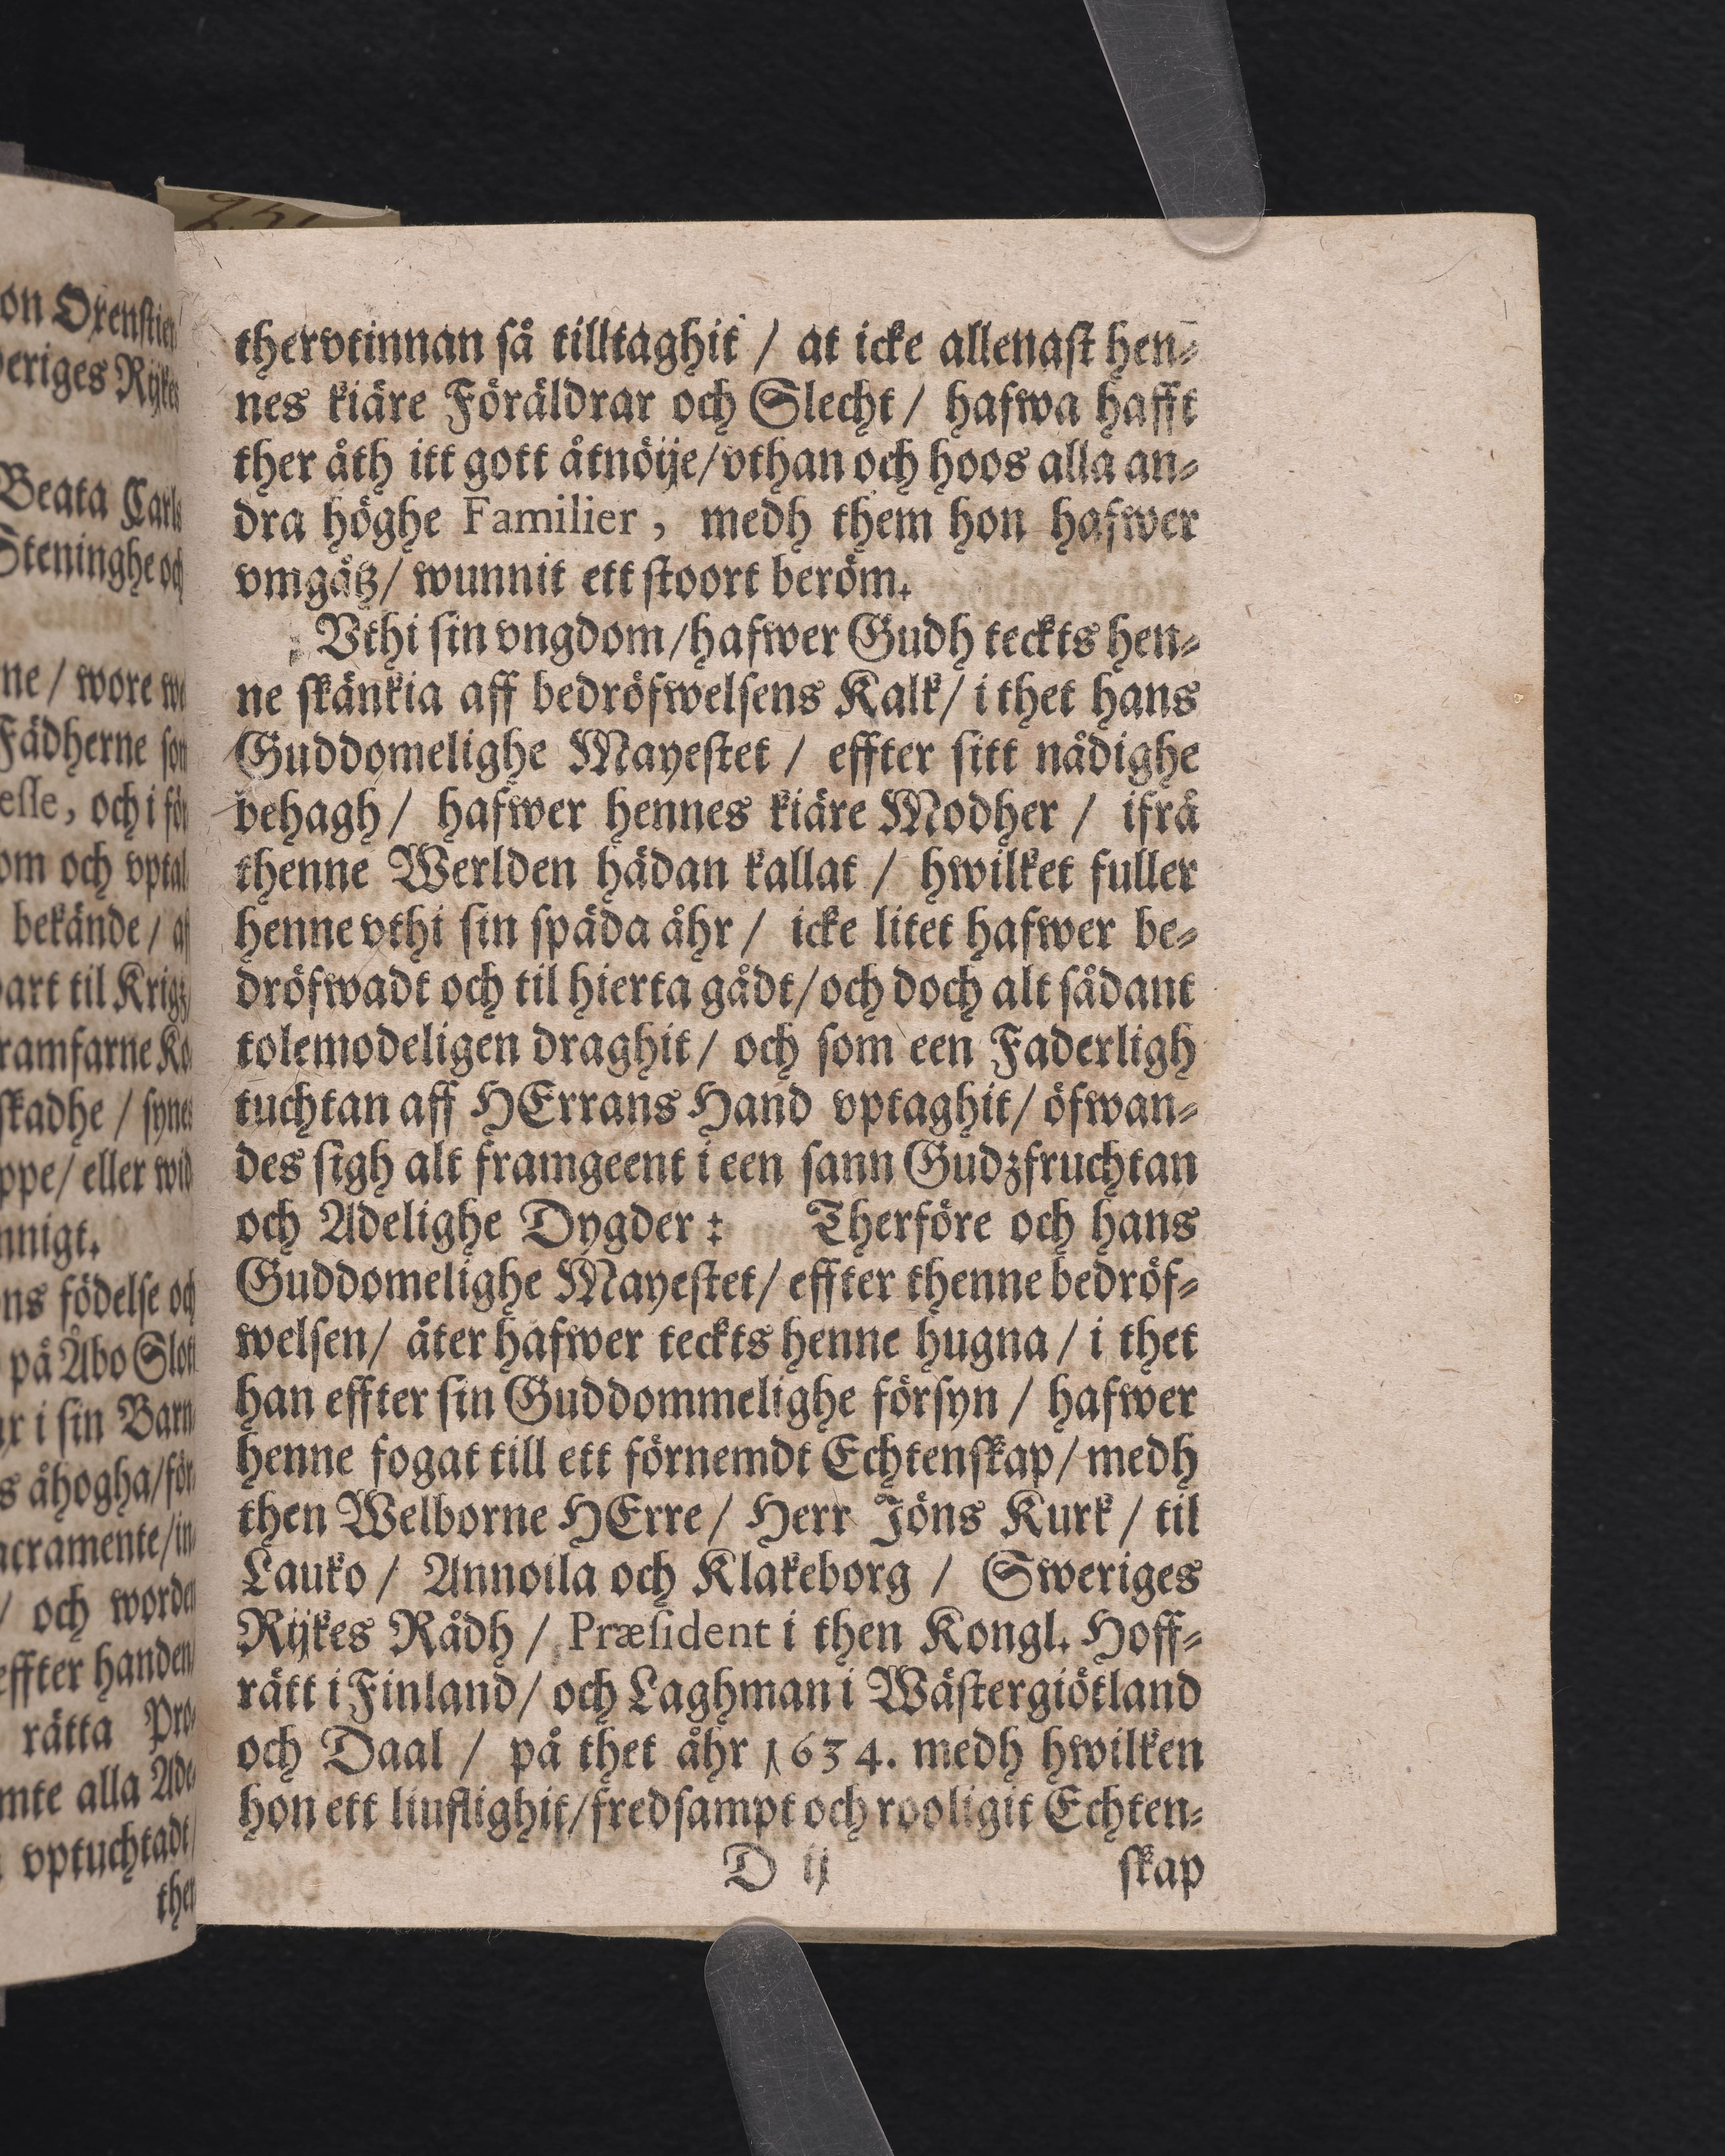 thervtinnan så tilltaghit / at icke allenast hen-
nes kiäre Föräldrar och Slecht / hafwa hafft
ther åth itt gott åtnöije/vthan och hoos alla an-
dra höghe Familier, medh them hon hafwer
vmgåtz/ wunnit ett stoort beröm.
Vthi sin vngdom/hafwer Gudh teckts hen-
ne skänkia aff bedröfwelsens Kalk/ i thet hans
Guddomelighe Mayestet / effter sitt nådighe
behagh/ hafwer hennes kiäre Modher / ifrå
thenne Werlden hädan kallat / hwilket fuller
henne vthi sin späda åhr / icke litet hafwer be-
dröfwadt och til hierta gådt/och doch alt sådant
tolemodeligen draghit/ och som een Faderligh
tuchtan aff HErrans Hand vptaghit/ öfwan-
des sigh alt framgeent i een sann Gudzfruchtan
och Adelighe Dygder: Therföre och hans
Guddomelighe Mayestet/ effter thenne bedröf-
welsen/ åter hafwer teckts henne hugna / i thet
han effter sin Guddommelighe försyn / hafwer
henne fogat till ett förnemdt Echtenskap/ medh
then Welborne HErre/ Herr Jöns Kurk / til
Lauko / Annoila och Klakeborg / Sweriges
Rijkes Rådh / Præsident i then Kongl. Hoff-
rätt i Finland/ och Laghman i Wästergiötland
och Daal / på thet åhr 1634. medh hwilken
hon ett liufflighit/fredsampt och rooligit Echten-
D ij skap
on Oxenstier
Beata Carls
Steninghe och
ne / wore
Fädherne
esse, och i
och vptal
bekände /
til Krigz
skadhe /
/ eller
födelse och
på Åbo Slott
i sin Barn
åhogha/för
/ och worden
effter handen
rätta Pro-
alla Ade-
vptuchtadt/
ther